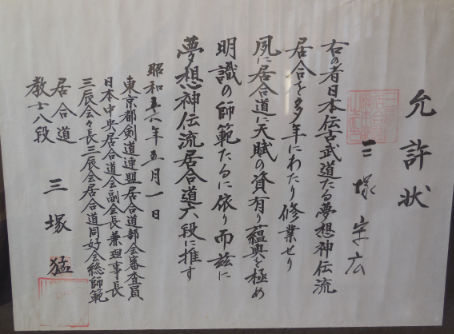 允許状
三塚宗広
右の者日本伝古武道たる夢想神伝流
居合を多年にわたり修業せり
夙に居合道に天賦の資有り蘊奥を極め
明識の師範たるに依り而茲に
夢想神伝流居合道六段に推す
昭和五六年五月一日
東京都剣道連盟居合道部会審査員
日本中央居合道会副会長兼理事長
三辰会々長三辰会居合道同好会総師範
居合道
教士八段
三塚猛